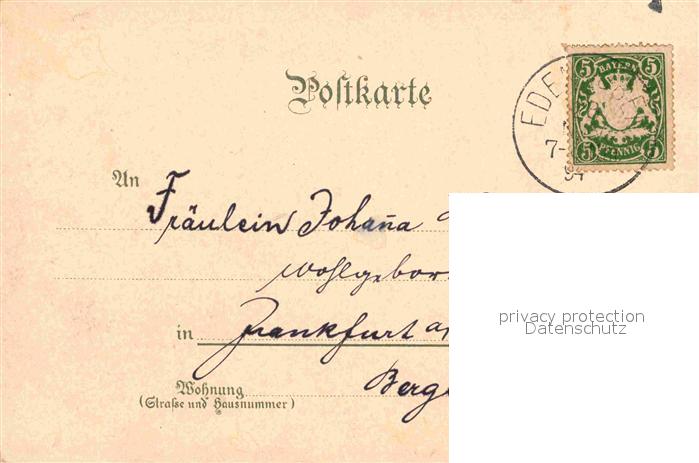 Postkarte
5 BAYERN 5
5 PFENNIG 5
7-
An Fräulein Johanna
Wohlgebor
in Frankfurt a/
Wohnung Berge
(Straße und Hausnummer)
privacy protection
Datenschutz